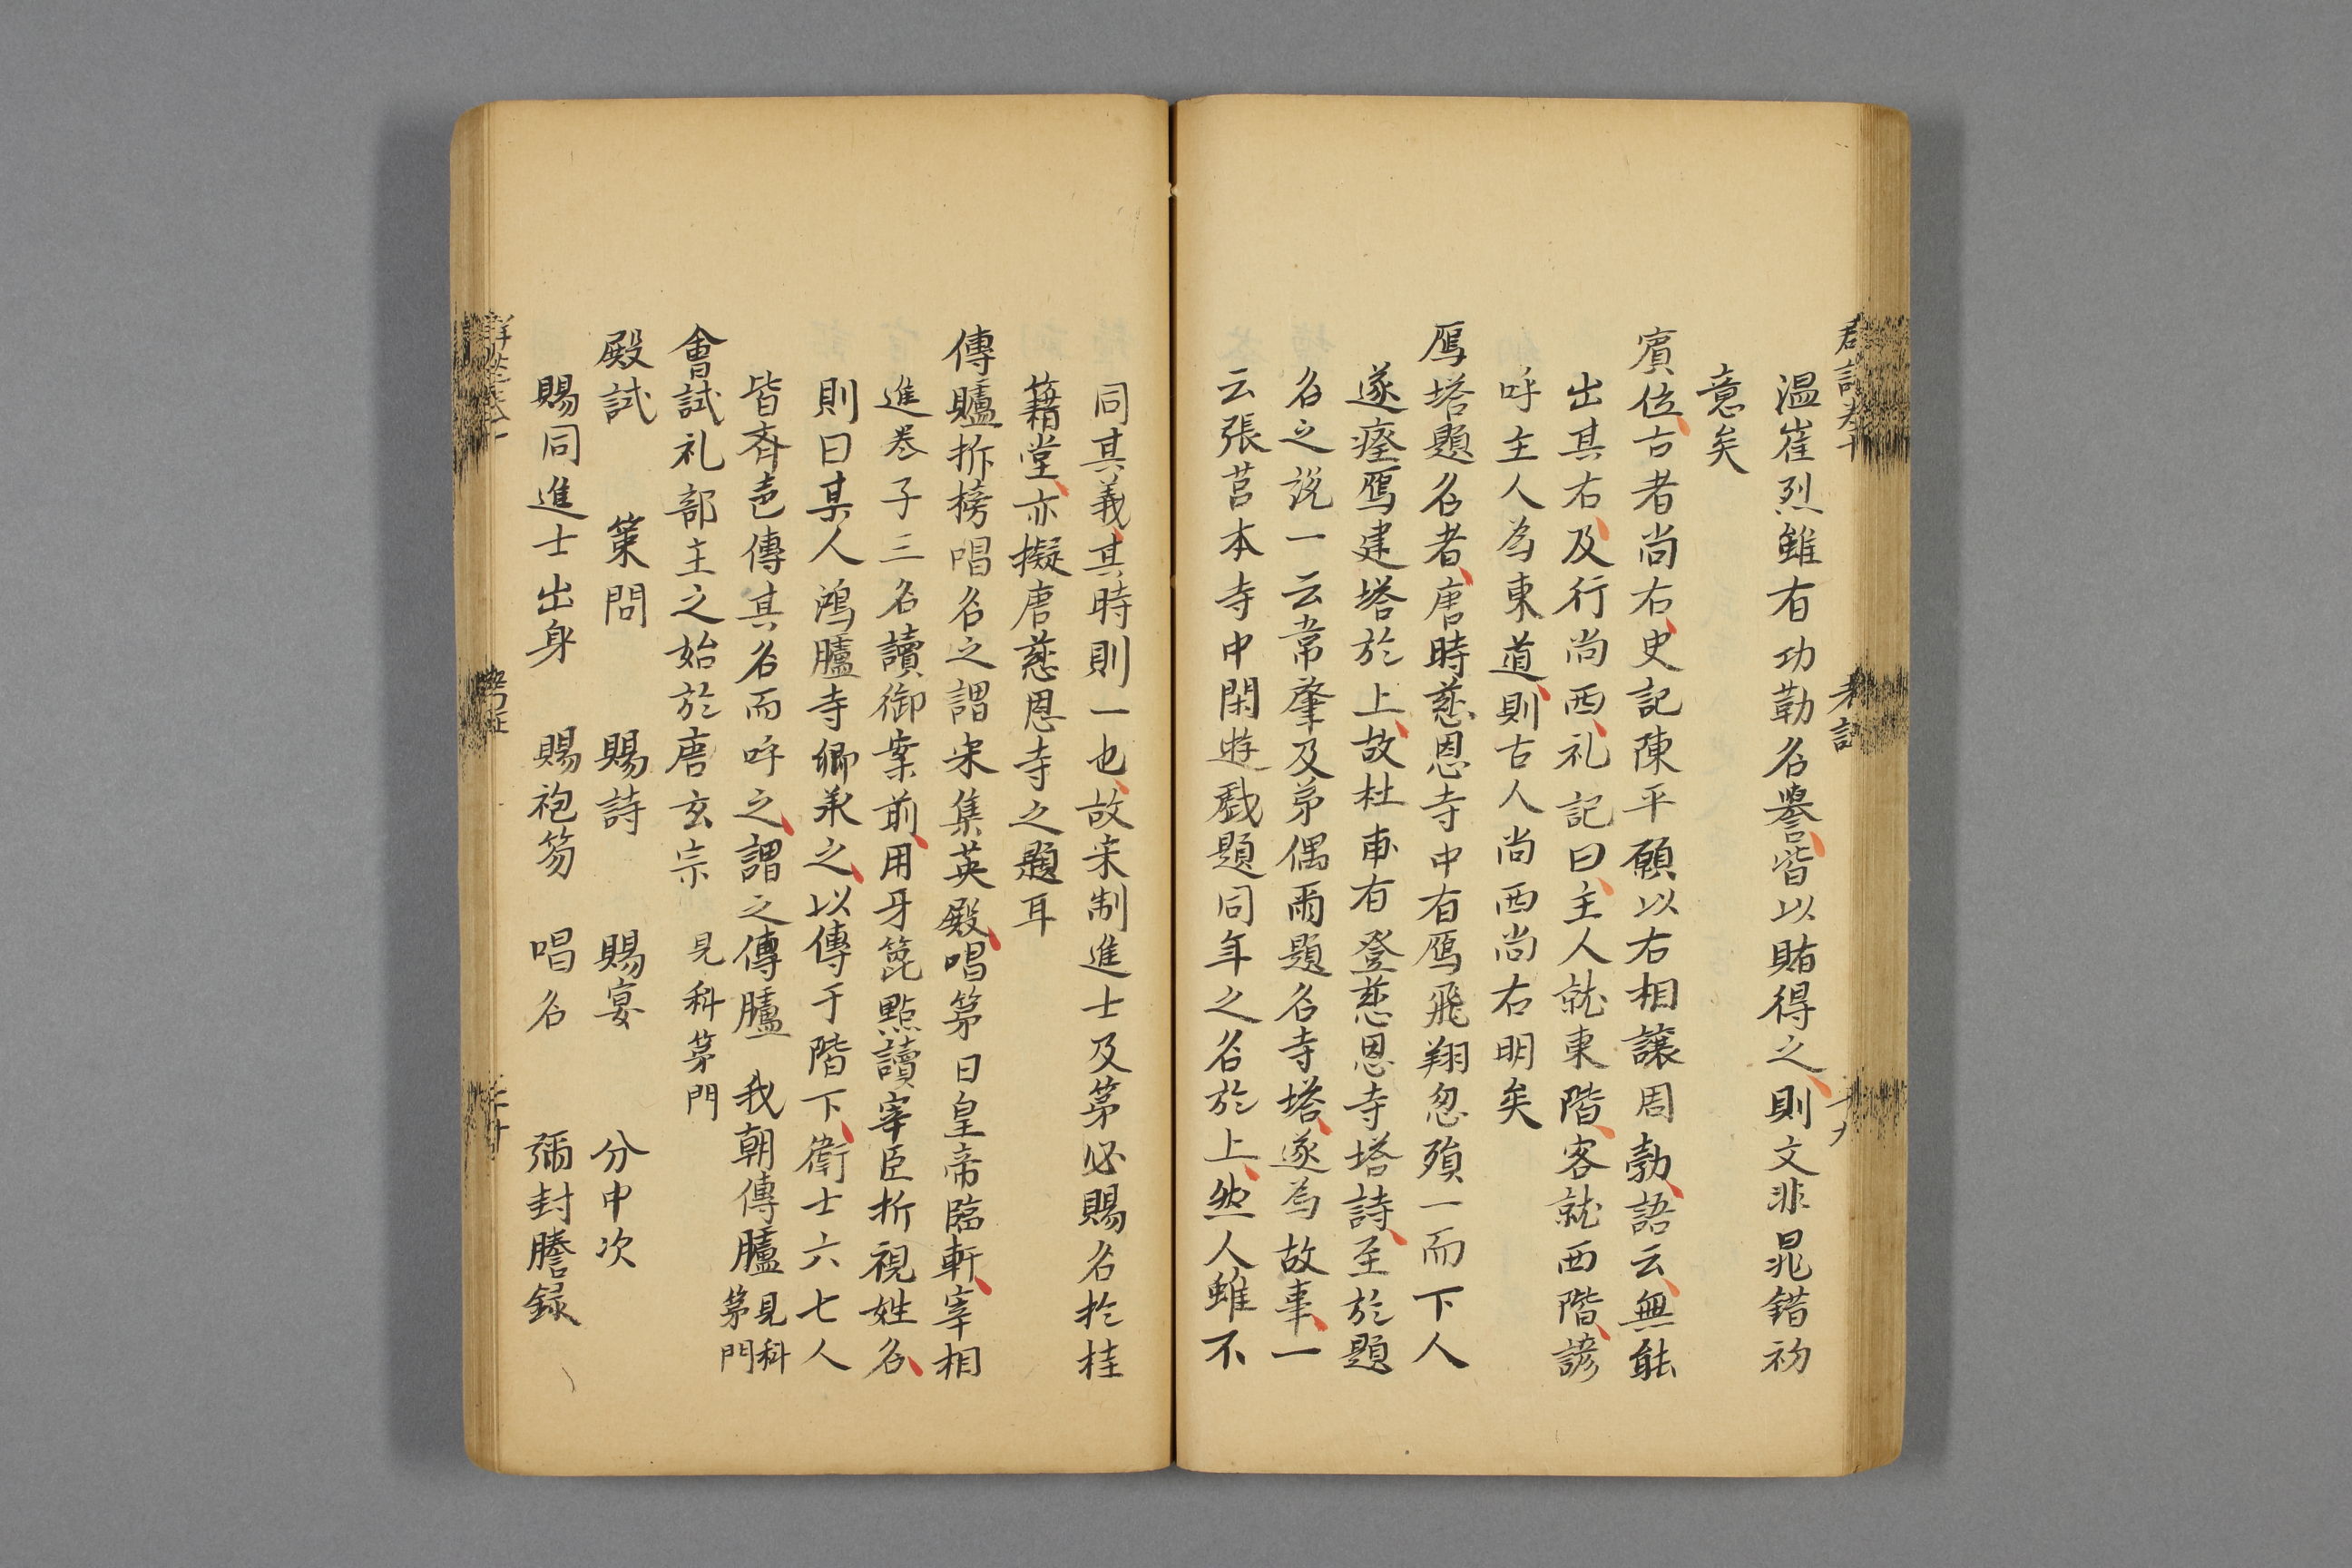 温崔烈雖有功勤名譽皆以賄得之則文非晁錯初
意矣
賓位古者尚右史記陳平願以右相讓周勃語云無能
出其右及行尚西礼記曰主人就東階客就西階諺
呼主人為東道則古人尚西尚右明矣
鴈塔題名者唐時慈恩寺中有鴈飛翔忽殞一而下人
遂瘞鴈建塔於上故杜甫有登慈恩寺塔詩至於題
名之說一云常肇及第偶爾題名寺塔遂為故事一
云張莒本寺中閑遊戲題同年之名於上然人雖不
同其義其時則一也故宋制進士及第必賜名於桂
籍堂亦擬唐慈恩寺之題耳
傳臚拆榜唱名之謂宋集英殿唱第日皇帝臨軒宰相
進卷子三名讀御案前用牙篦點讀宰臣折視姓名
則曰某人鴻臚寺卿承之以傳于階下衛士六七人
皆齊声傳其名而呼之謂之傳臚 我朝傳臚見科第門
會試礼部主之始於唐玄宗 見科第門
殿試 策問 賜詩 賜宴 分甲次
賜同進士出身 賜袍笏 唱名 彌封謄録